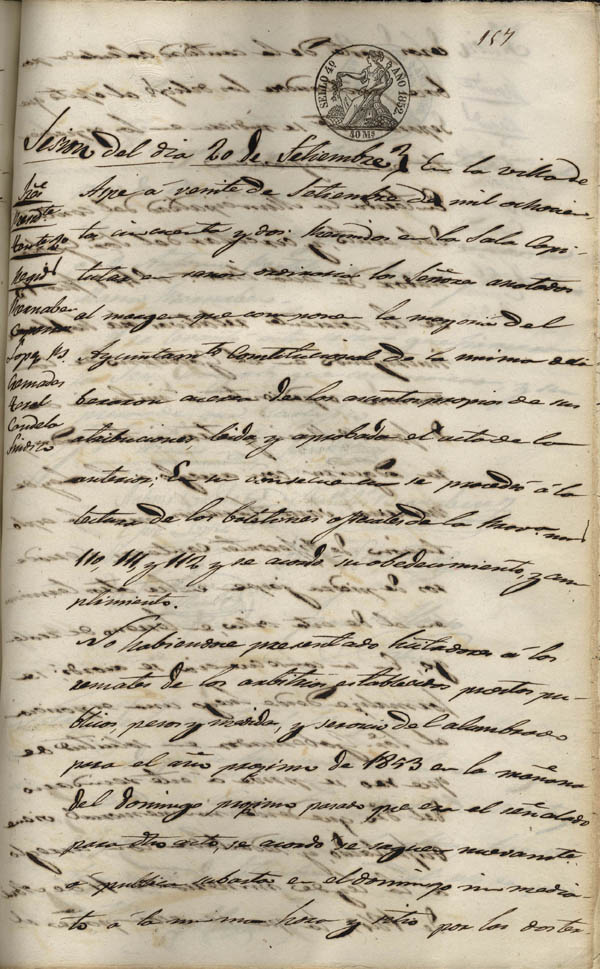 157
SELLO 4º AÑO 1852.
40 Ms
Sesion del dia 20 de Setiembre } En la villa de
Aspe a veinte de Setiembre de mil ochocien-
tos cincuenta y dos: Reunidos en la Sala Capi-
tular en sesion ordinaria los Señores anotados
al margen que componen la mayoria del
Ayuntamto Constitucional de la misma deli-
beraron acerca de los asuntos propios de sus
atribuciones, leida y aprobada el acta de la
anterior; En su consecuencia se procedió á la
lectura de los boletines oficiales de la Prova
110, 111, y 112 y se acordó su obedecimiento, y cum-
plimiento.
No habiendose presentado licitadores á los
remates de los arbitrios establecidos puestos pu-
blicos, pesos y medida, y servicio del alumbrado
para el año procsimo de 1853 en la mañana
del domingo procsimo pasado que era el señalado
para dho acto, se acordó se saquen nuevamte
a publica subasta en el domingo inmedia-
to á la misma hora y sitio por los dos ter-
Sres
Regidl
Bernabeu
Lopez
Cremades
Candela
Sindico